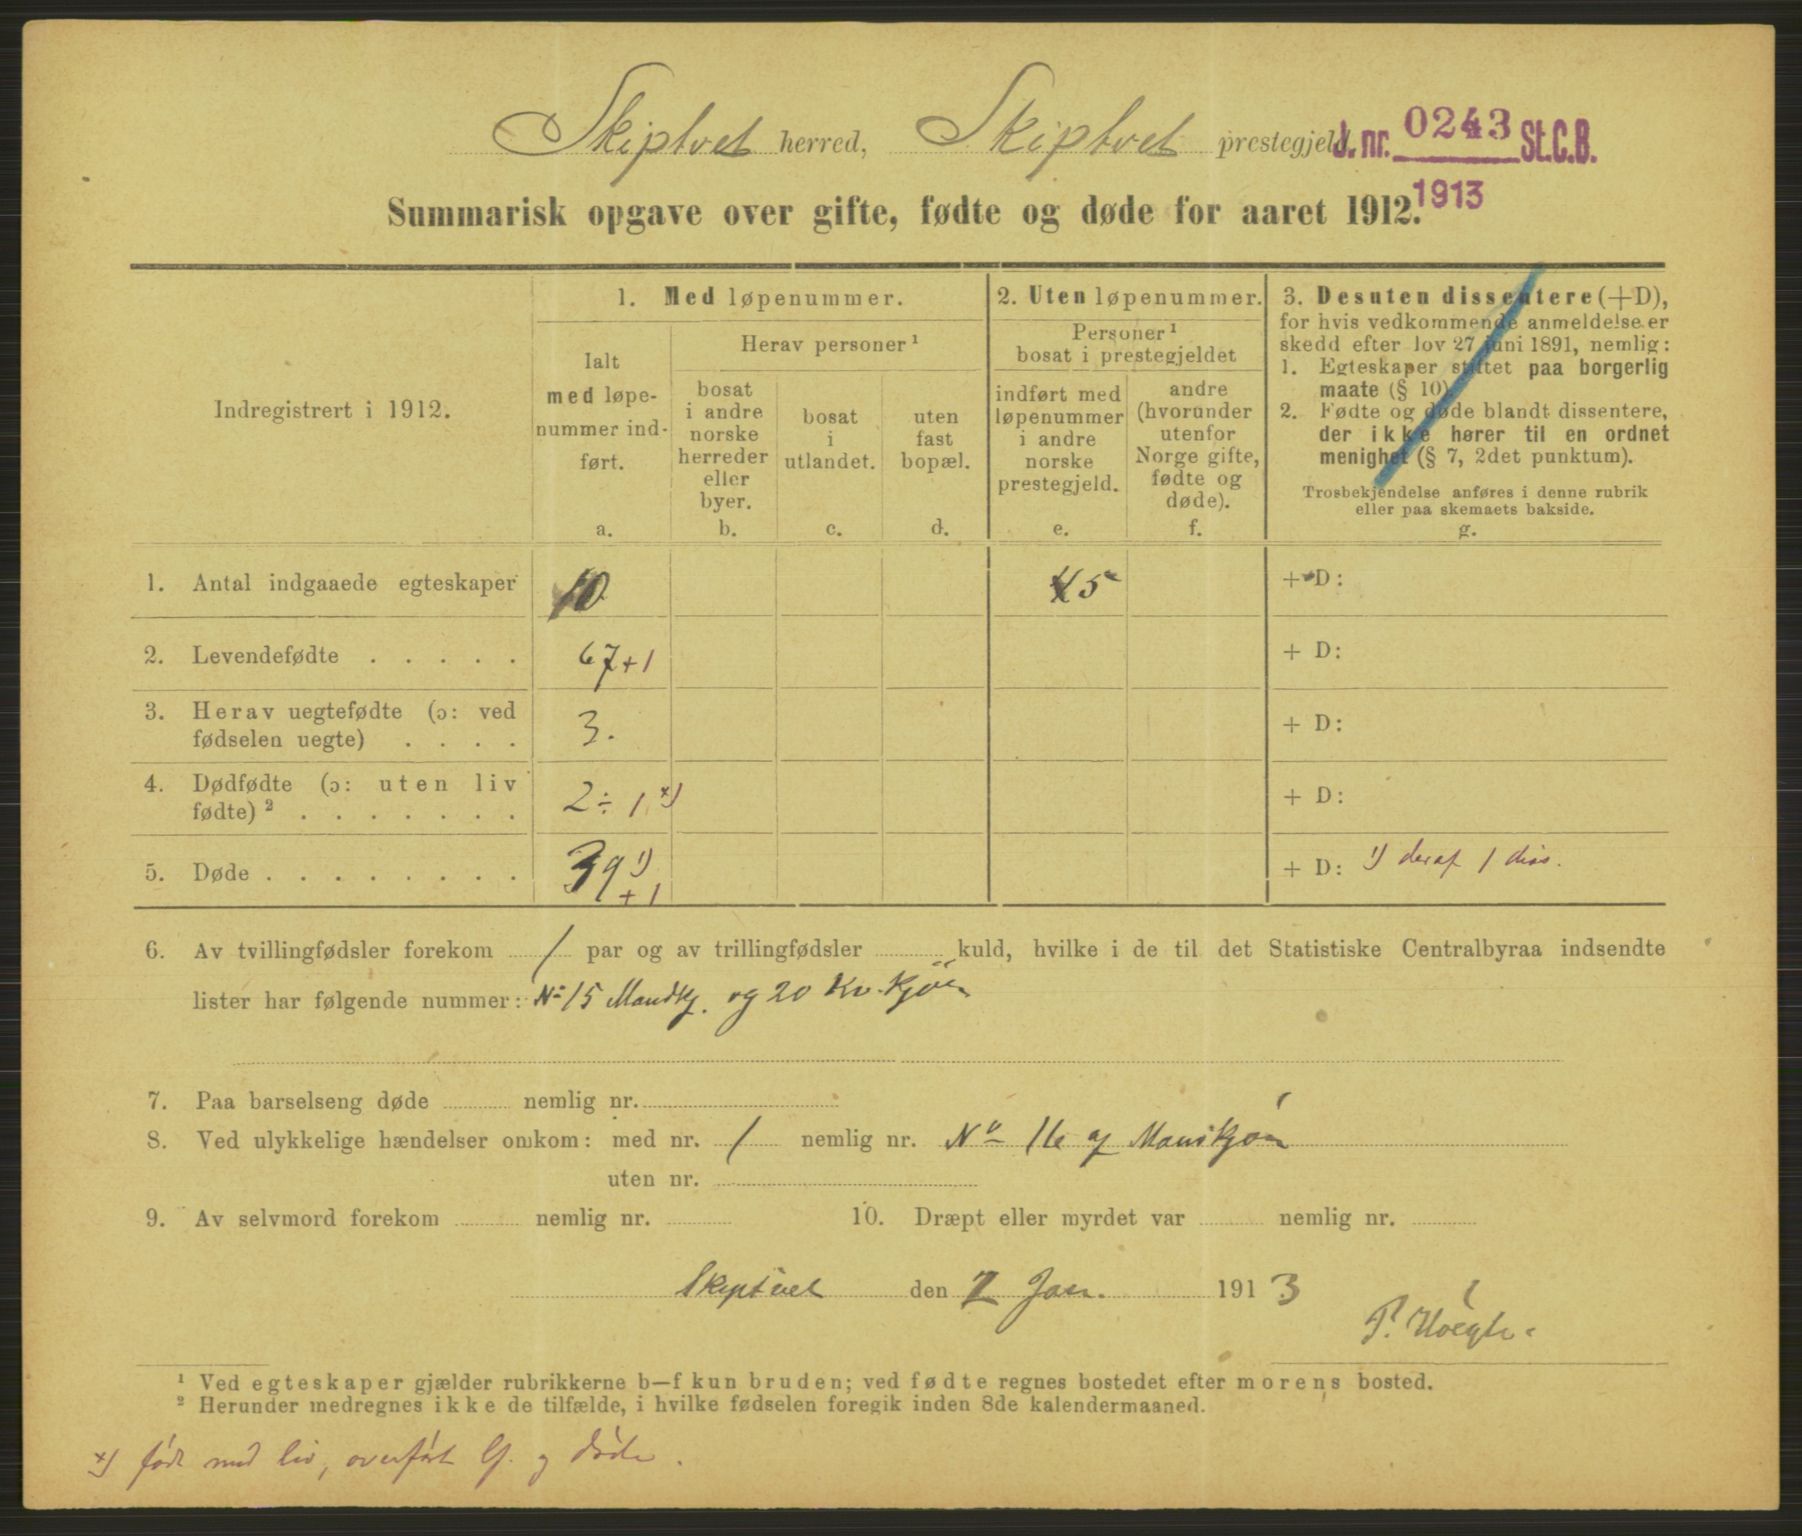 Skiptvet herred, Skiptvet prestegjeld.
J. nr. 0243 St.C.B.
1913
Summarisk opgave over gifte, fødte og døde for aaret 1912.
Indregistrert i 1912.
1. Med løpenummer.
Ialt
med løpe-
nummer ind-
ført.
a.
Herav personer ¹
bosat
i andre
norske
herreder
eller
byer.
b.
bosat
i
utlandet.
c.
uten
fast
bopæl.
d.
2. Uten løpenummer.
Personer ¹
bosat i prestegjeldet
indført med
løpenummer
i andre
norske
prestegjeld.
e.
andre
(hvorunder
utenfor
Norge gifte,
fødte og
døde).
f.
3. Desuten dissentere (+D),
for hvis vedkommende anmeldelse er
skedd efter lov 27 juni 1891, nemlig:
1. Egteskaper stiftet paa borgerlig
maate (§ 10).
2. Fødte og døde blandt dissentere,
der ikke hører til en ordnet
menighet (§ 7, 2det punktum).
Trosbekjendelse anføres i denne rubrik
eller paa skemaets bakside.
g.
1. Antal indgaaede egteskaper 10 4 5 + D:
2. Levendefødte . . . . . 67 + 1 + D:
3. Herav uegtefødte (ɔ: ved
fødselen uegte) . . . . 3. + D:
4. Dødfødte (ɔ: uten liv
fødte) ² . . . . . . . 2 ÷ 1 x) + D:
5. Døde . . . . . . . . 39 1) + 1 + D: 1) deraf 1 diss.
6. Av tvillingfødsler forekom 1 par og av trillingfødsler kuld, hvilke i de til det Statistiske Centralbyraa indsendte
lister har følgende nummer: No 15 Mandkj. og 20 Kv.kjön
7. Paa barselseng døde nemlig nr.
8. Ved ulykkelige hændelser omkom: med nr. 1 nemlig nr. No 16 af Manskjön
uten nr.
9. Av selvmord forekom nemlig nr. 10. Dræpt eller myrdet var nemlig nr.
Skiptvet den 2 Jan. 1913
¹ Ved egteskaper gjælder rubrikkerne b—f kun bruden; ved fødte regnes bostedet efter morens bosted.
² Herunder medregnes ikke de tilfælde, i hvilke fødselen foregik inden 8de kalendermaaned.
x) född med liv, overført lf. og döde.